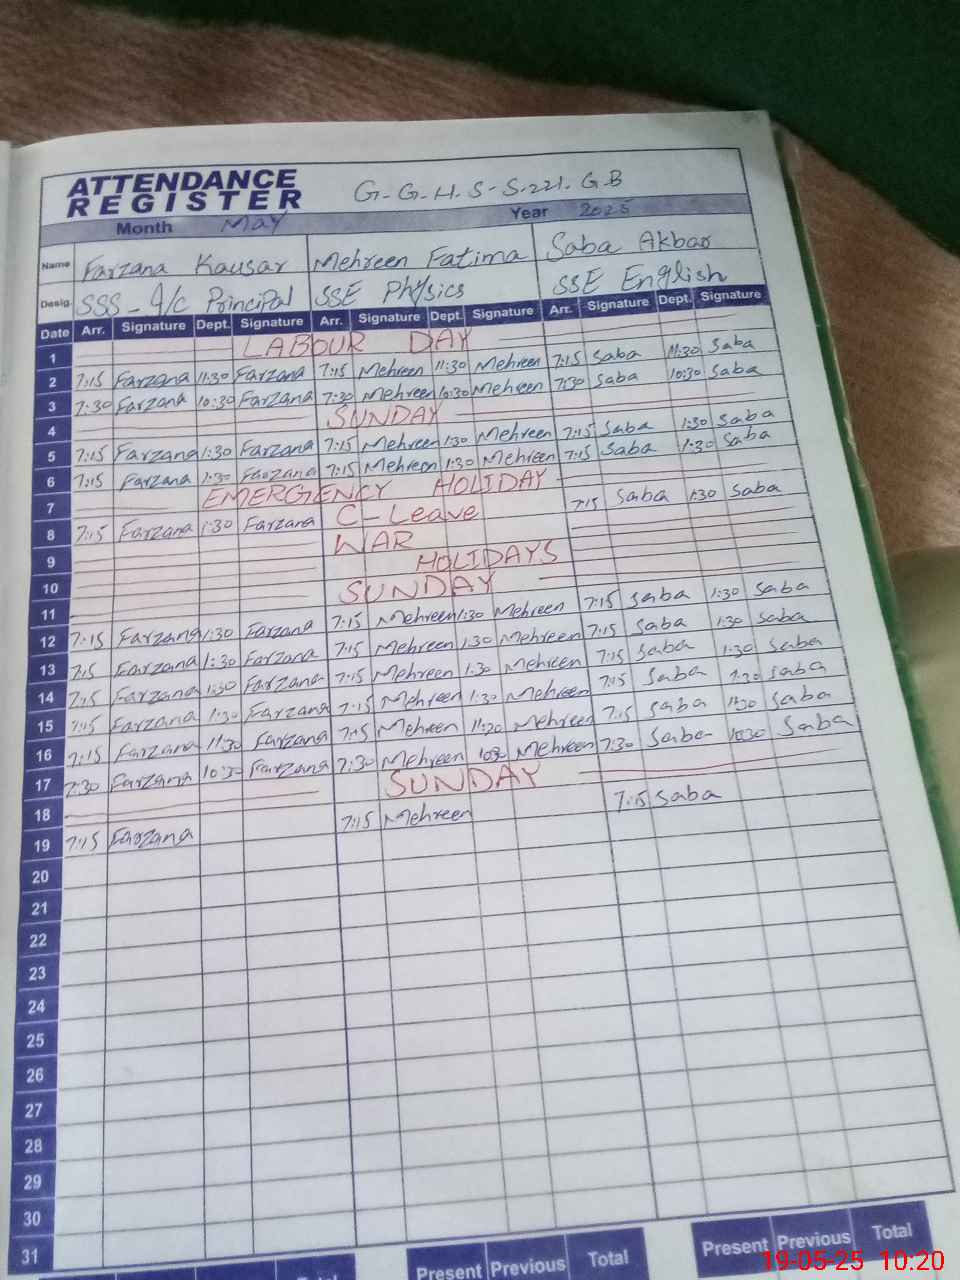 ATTENDANCE
REGISTER
G-G-H-S-S-221-GB
Month May Year 2025
Name Farzana Kausar Mehreen Fatima Saba Akbar
Desig. SSS-I/c Principal SSE Physics SSE English
Date Arr. Signature Dept. Signature Arr. Signature Dept. Signature Arr. Signature Dept. Signature
1 LABOUR DAY
2 7:15 Farzana 11:30 Farzana 7:15 Mehreen 11:30 Mehreen 7:15 Saba 11:30 Saba
3 7:30 Farzana 10:30 Farzana 7:30 Mehreen 10:30 Mehreen 7:30 Saba 10:30 Saba
4 SUNDAY
5 7:15 Farzana 1:30 Farzana 7:15 Mehreen 1:30 Mehreen 7:15 Saba 1:30 Saba
6 7:15 Farzana 1:30 Farzana 7:15 Mehreen 1:30 Mehreen 7:15 Saba 1:30 Saba
7 EMERGENCY HOLIDAY
8 7:15 Farzana 1:30 Farzana C-Leave 7:15 Saba 1:30 Saba
9 WAR
10 HOLIDAYS
11 SUNDAY
12 7:15 Farzana 1:30 Farzana 7:15 Mehreen 1:30 Mehreen 7:15 Saba 1:30 Saba
13 7:15 Farzana 1:30 Farzana 7:15 Mehreen 1:30 Mehreen 7:15 Saba 1:30 Saba
14 7:15 Farzana 1:30 Farzana 7:15 Mehreen 1:30 Mehreen 7:15 Saba 1:30 Saba
15 7:15 Farzana 1:30 Farzana 7:15 Mehreen 1:30 Mehreen 7:15 Saba Saba
16 7:15 Farzana 11:30 Farzana 7:15 Mehreen Mehreen 7:15 Saba 11:30 Saba
17 7:30 Farzana 10:30 Farzana 7:30 Mehreen 10:30 Mehreen 7:30 Saba 10:30 Saba
18 SUNDAY
19 7:15 Farzana 7:15 Mehreen 7:15 Saba
20
21
22
23
24
25
26
27
28
29
30
31
Present Previous Total Present Previous Total
19-05-25 10:20